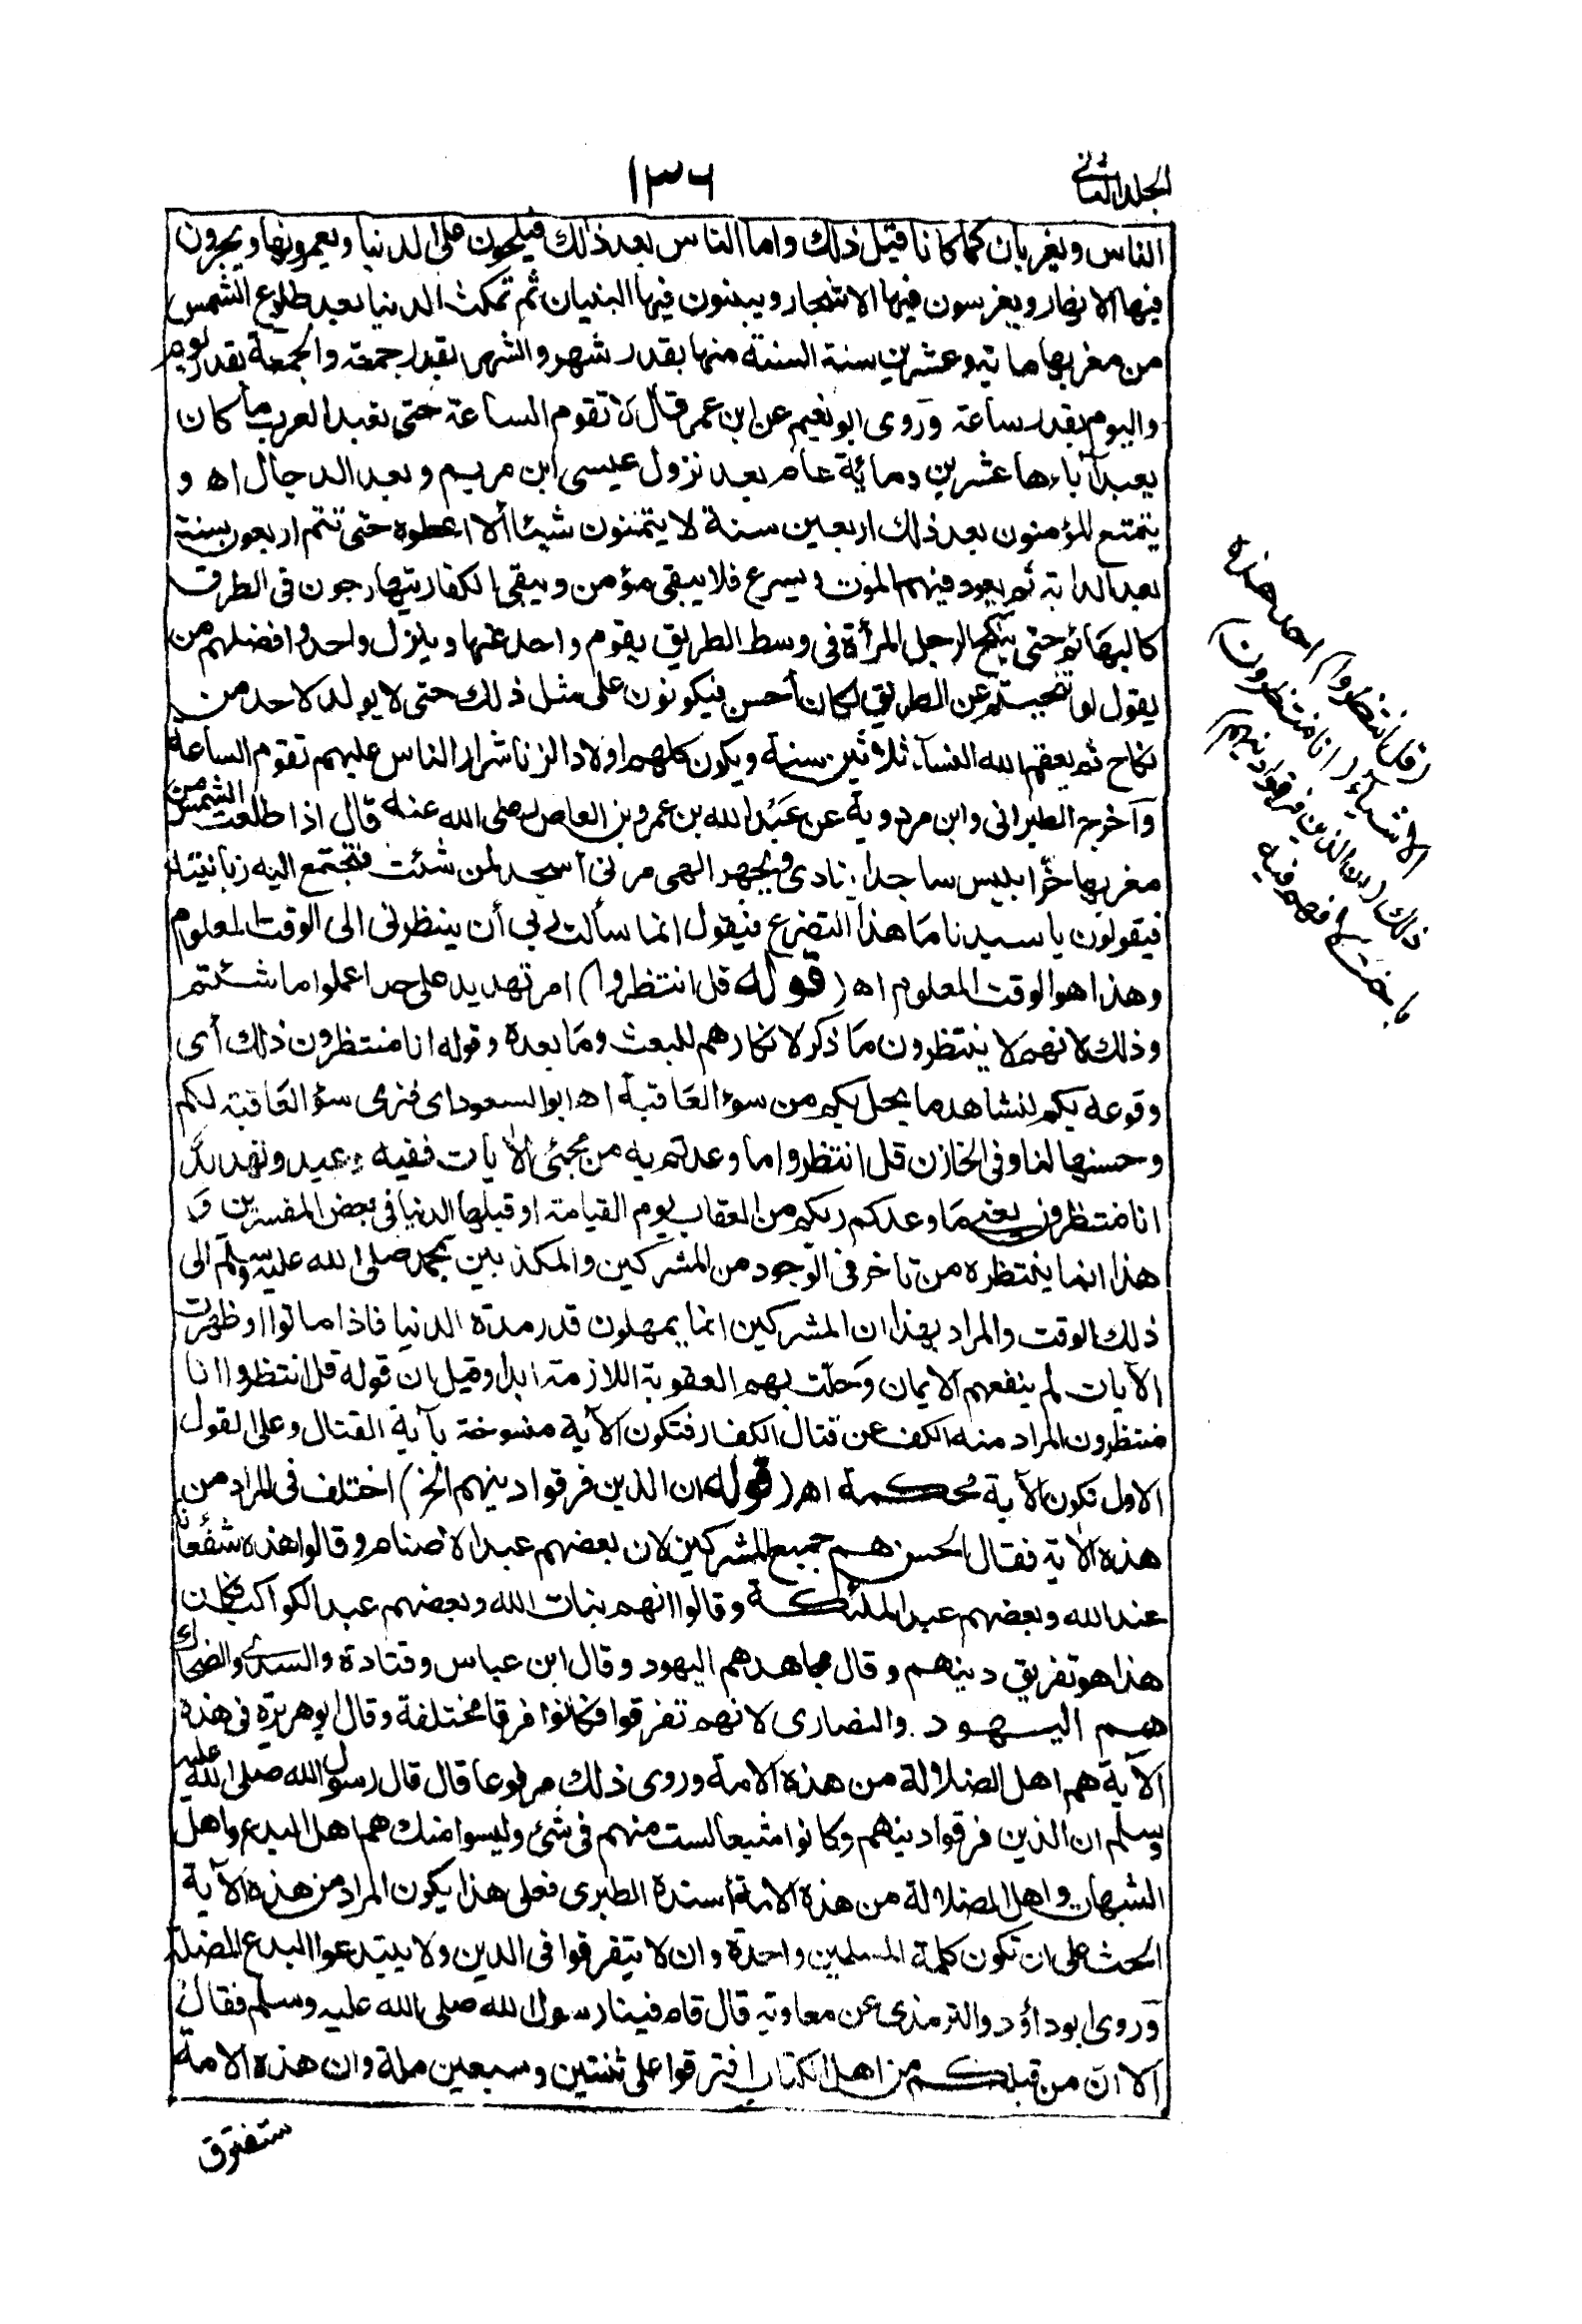 الجلد الثاني
١٣٦
الناس ويغربان كما كانا قبل ذلك واما الناس بعد ذلك فيلحون على الدنيا ويعمرونها ويجرون
فيها الانهار ويغرسون فيها الاشجار ويبنون فيها البنيان ثم تمكث الدنيا بعد طلوع الشمس
من مغربها ماية وعشرين سنة السنة منها بقدر شهر والشهر بقدر جمعة والجمعة بقدر يوم
واليوم بقدر ساعة وروى ابو نعيم عن ابن عمر قال لا تقوم الساعة حتى تعبد العرب ما كان
يعبد آباءها عشرين ومائة عام بعد نزول عيسى ابن مريم وبعد الدجال اه و
يتمتع المؤمنون بعد ذلك اربعين سنة لا يتمنون شيئا ألا اعطوه حتى تتم اربعون سنة
بعد الدابة ثم يعود فيهم الموت ويسرع فلا يبقى مؤمن ويبقى الكفار يتهارجون فى الطرق
كالبهائم حتى ينكح الرجل المرأة فى وسط الطريق يقوم واحد عنها وينزل واحد وافضلهم من
يقول لو تنحيتم عن الطريق لكان أحسن فيكونون على مثل ذلك حتى لا يولد لاحد من
نكاح ثم يعقم الله النسآء ثلاثين سنة ويكون كلهم اولاد الزنا شرار الناس عليهم تقوم الساعة
وآخرج الطبرانى وابن مردوية عن عبد الله بن عمرو بن العاص رضى الله عنه قال اذا طلعت الشمس من
مغربها خرّ ابليس ساجدا ينادى ويجهر الهى مرنى أسجد لمن شئت فتجتمع اليه زبانيته
فيقولون يا سيدنا ما هذا التضرع فيقول انما سألت ربى أن ينظرنى الى الوقت المعلوم
وهذا هو الوقت المعلوم اه (قوله قل انتظروا) امر تهديد على حد اعملوا ما شئتم
وذلك لانهم لا ينتظرون ما ذكر لانكارهم للبعث وما بعده وقوله انا منتظرون ذلك أى
وقوعه بكم لنشاهد ما يحل بكم من سوء العاقبة اه ابو السعود اى فنرى سؤ العاقبة لكم
وحسنها لنا وفى الخازن قل انتظروا ما وعدتم به من مجئ الآيات ففيه وعيد وتهديد
انا منتظرون يعنى ما وعدكم ربكم من العقاب يوم القيامة او قبلها الدنيا فى بعض المفسرين و
هذا انما ينتظره من تاخر فى الوجود من المشركين والمكذبين بمحمد صلى الله عليه وسلم الى
ذلك الوقت والمراد بهذا ان المشركين انما يمهلون قدر مدة الدنيا فاذا ماتوا او ظهرت
الآيات لم ينفعهم الايمان وحلت بهم العقوبة اللازمة ابدا وقيل ان قوله قل انتظروا انا
منتظرون المراد منه الكف عن قتال الكفار فتكون الآية منسوخة بآية القتال وعلى القول
الاول تكون الآية محكمة اه (قوله ان الذين فرقوا دينهم الخ) اختلف فى المراد من
هذه الآية فقال الحسن هم جميع المشركين لان بعضهم عبد الاصنام وقالوا هذه شفعاؤنا
عند الله وبعضهم عبد الملئكة وقالوا انهم بنات الله وبعضهم عبد الكواكب فكان
هذا هو تفريق دينهم وقال مجاهد هم اليهود وقال ابن عباس وقتادة والسدى والضحاك
هم اليهود والنصارى لانهم تفرقوا فكانوا فرقا مختلفة وقال ابو هريرة فى هذه
الآية هم اهل الضلالة من هذه الامة وروى ذلك مرفوعا قال قال رسول الله صلى الله عليه
وسلم ان الذين فرقوا دينهم وكانوا شيعا لست منهم فى شئ وليسوا منك هم اهل البدع واهل
الشبهات واهل الضلالة من هذه الامة أسنده الطبرى فعلى هذا يكون المراد من هذه الآية
الحث على ان تكون كلمة المسلمين واحدة وان لا يتفرقوا فى الدين ولا يبتدعوا البدع المضلة
وروى ابو داؤد والترمذى عن معاوية قال قام فينا رسول الله صلى الله عليه وسلم فقال
ألا ان من قبلكم من اهل الكتاب افترقوا على ثنتين وسبعين ملة وان هذه الامة
ستفترق
(قل انتظروا) احد هذه
الاشياء (انا منتظرون)
ذلك (ان الذين فرقوا دينهم)
باختلافهم فيه